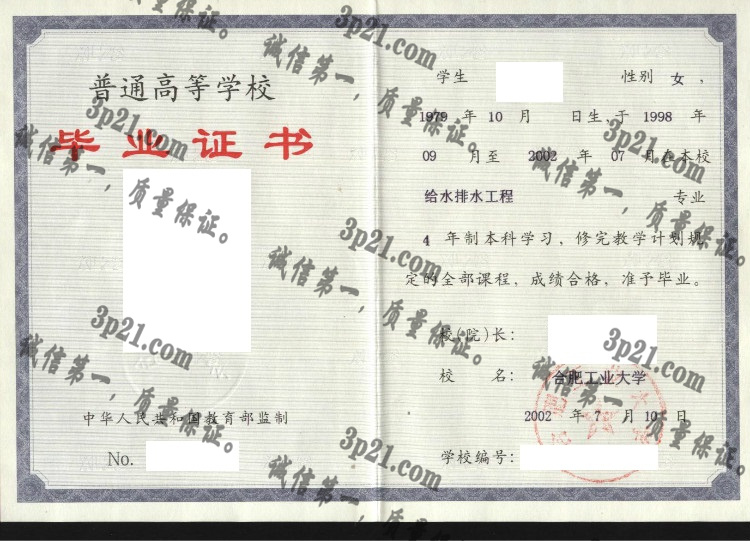 普通高等学校
毕业证书
中华人民共和国教育部监制
No.
学生 性别 女，
1979 年 10 月 日生，于 1998 年
09 月至 2002 年 07 月在本校
给水排水工程 专业
4 年制本科学习，修完教学计划规
定的全部课程，成绩合格，准予毕业。
校（院）长：
校 名： 合肥工业大学
2002 年 7 月 10 日
学校编号：
3p21.com
诚信第一，质量保证。
3p21.com
诚信第一，质量保证。
3p21.com
诚信第一，质量保证。
3p21.com
诚信第一，质量保证。
3p21.com
诚信第一，质量保证。
3p21.com
诚信第一，质量保证。
3p21.com
诚信第一，质量保证。